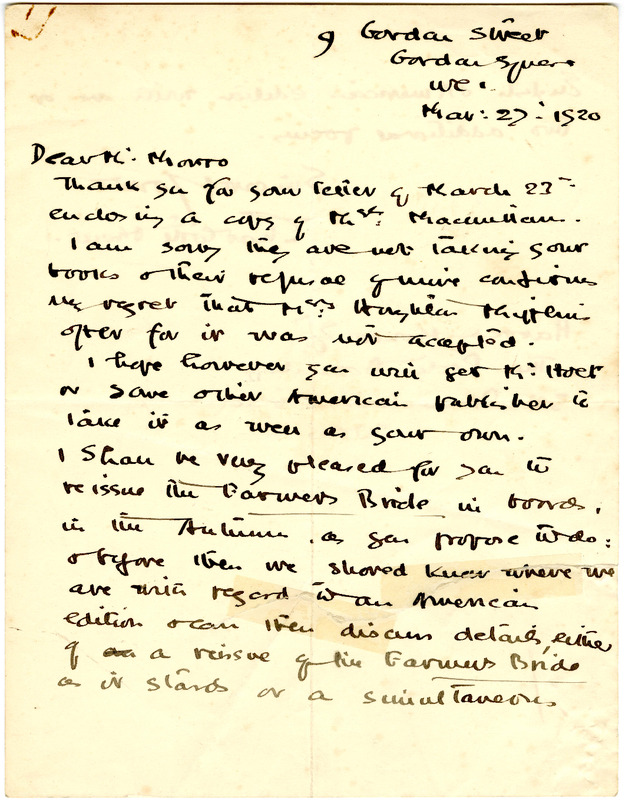 9 Gordon Street
Gordon Square
WC1.
Mar: 27: 1920
Dear Mr. Monro
Thank you for your letter of March 23rd
enclosing a copy of Messrs. Macmillan.
I am sorry they are not taking your
books & their refusal of mine confirms
my regret that Messrs Houghton Mifflin's
offer for it was not accepted.
I hope however you will get Mr. Holt
or some other American publisher to
take it as well as your own.
I shall be very pleased for you to
reissue the Farmer's Bride in boards,
in the Autumn, as you propose to do:
& before then we should know where we
are with regard to an American
edition & can then discuss details, either
of a reissue of the Farmer's Bride
as it stands or a simultaneous